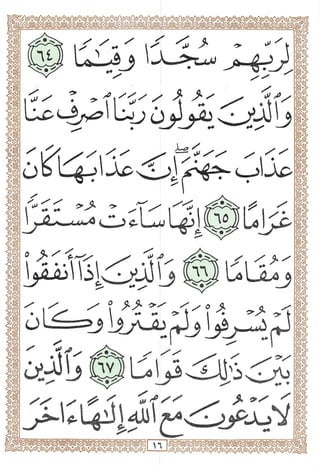 لِرَبِّهِمْ سُجَّدًا وَقِيَٰمًا ٦٤
وَٱلَّذِينَ يَقُولُونَ رَبَّنَا ٱصْرِفْ عَنَّا
عَذَابَ جَهَنَّمَ ۖ إِنَّ عَذَابَهَا كَانَ
غَرَامًا ٦٥ إِنَّهَا سَآءَتْ مُسْتَقَرًّا
وَمُقَامًا ٦٦ وَٱلَّذِينَ إِذَآ أَنفَقُوا۟
لَمْ يُسْرِفُوا۟ وَلَمْ يَقْتُرُوا۟ وَكَانَ
بَيْنَ ذَٰلِكَ قَوَامًا ٦٧ وَٱلَّذِينَ
لَا يَدْعُونَ مَعَ ٱللَّهِ إِلَٰهًا ءَاخَرَ
١٦